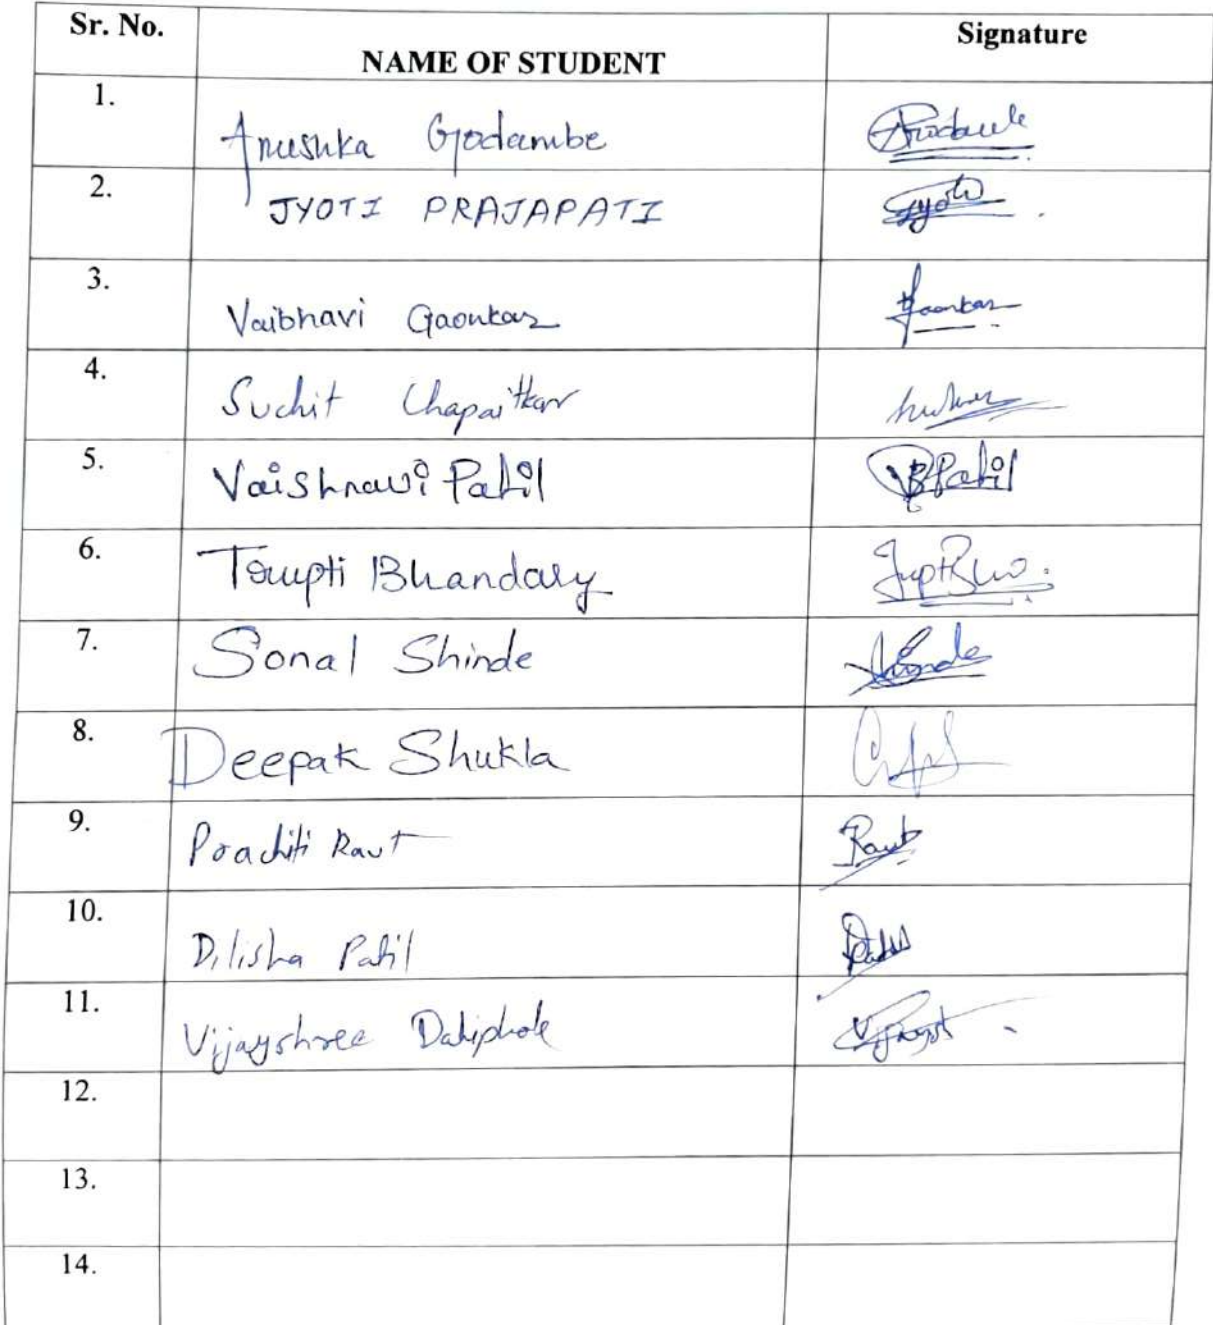 Sr. No. NAME OF STUDENT Signature
1. Anushka Godambe
2. JYOTI PRAJAPATI Jyoti
3. Vaibhavi Gaonkar Gaonkar
4. Suchit Chapaitkar
5. Vaishnavi Patil VBPatil
6. Trupti Bhandary
7. Sonal Shinde Shinde
8. Deepak Shukla
9. Prachiti Raut Raut
10. Dilisha Patil
11. Vijayshree Dahiphale
12.
13.
14.